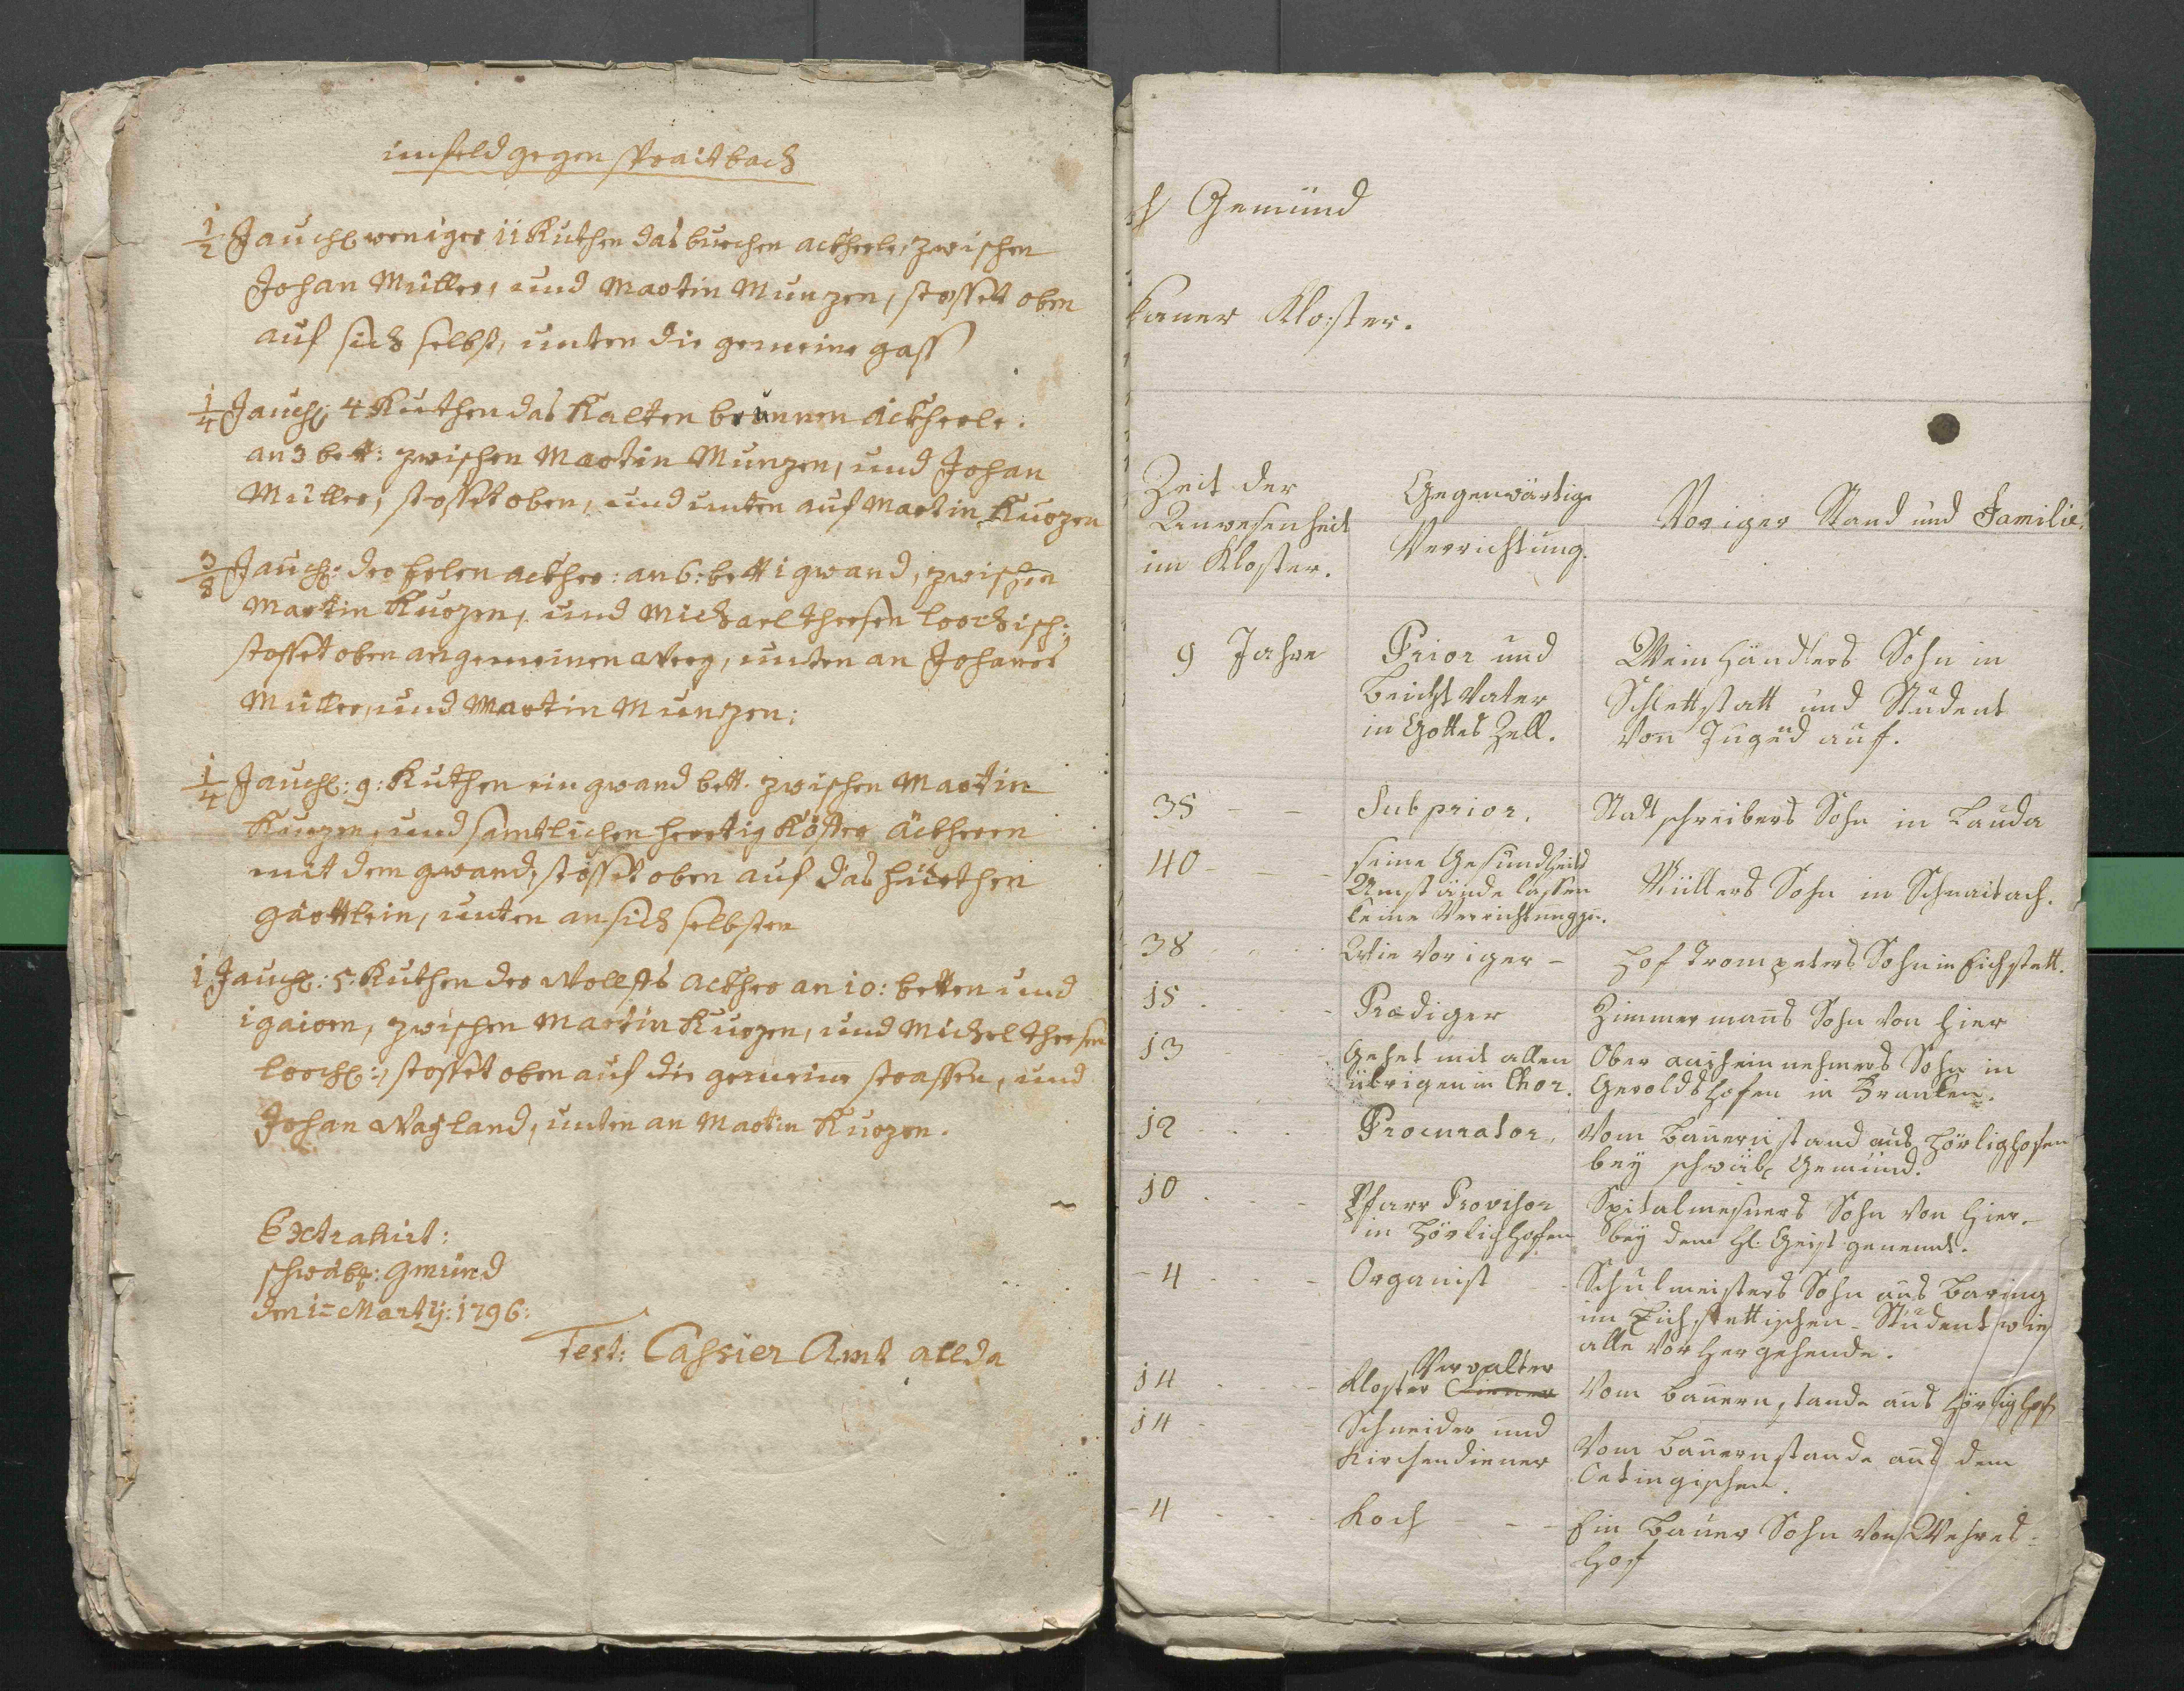 im feld gegen spraitbach
1/2 Jauch: weniger 11 Ruthen das burchen ackherle, zwischen
Johan Müller, und Martin Munzen, stosset oben
auf sich selbst, unten die gemeine gass
1/4 Jauch: 4 Ruthen das Kalten brunnen äckherle.
an 3 bett: zwischen Martin Munzen, und Johan
Müller, stosset oben, und unten auf Martin Kurzen
3/8 Jauch: der holen ackher: an 6: bett 1 gwand, zwischen
Martin Kurzen, und Michael
stosset oben an gemeinen weeg, unten an Johanes
Müller, und Martin Munzen:
1/4 Jauch: 9: Ruthen ein gwand bett. zwischen Martin
Kurzen, und samtlichen äckhern
mit dem gwand, stosset oben auf das
gärttlein, unten an sich selbsten
1 Jauch: 5. Ruthen der ackher an 10: betten und
1 gairen, zwischen Martin Kurzen, und Michel
Lorch:, stosset oben auf die gemeine strassen, und
Johan unten an Martin Kurzen.
Extrahirt:
schwäb: Gmünd
den 1= Martij: 1796:
Test: Cassier Amt allda
h Gemünd
kaner Kloster.
Zeit der
Anwesenheit
im Kloster.
Gegenwärtige
Verrichtung.
Voriger Stand und Familie.
9 Jahre
Prior und
Beicht Vater
in Gottes Zell.
Weinhändlers Sohn in
Schlettstatt und Student
von Jugend auf.
35 - - Subprior. Stadtschreibers Sohn in Lauda
40 - - seine Gesundheits
Umstände lassen
keine Verrichtung zu.
Müllers Sohn in Schnaitach.
38 Wie voriger - Hof Trompeters Sohn in Eichstett.
15 Prediger Zimmermanns Sohn von hier
13 Gehet mit allen
übrigen in Chor.
Ober aufseinnehmers Sohn in
Geroldshofen in Franken.
12 Procurator. Vom Bauernstand aus Hörlighofen
bey schwäb. Gemünd.
10 Pfarr Provisor
in Hörlichhofen
Spitalmessners Sohn von hier -
bey dem hl. Geist genennt.
- 4 - Organist Schulmeisters Sohn aus Baring
im Eichstettischen - Student wie
alle vorhergehende.
14 - Kloster Verwalter Vom Bauernstande aus Hörlighof
14 Schneider und
Kirchendiener
Vom Bauernstande aus dem
Oetingischen.
- 4 - Koch - - - Ein Bauer Sohn von
hof